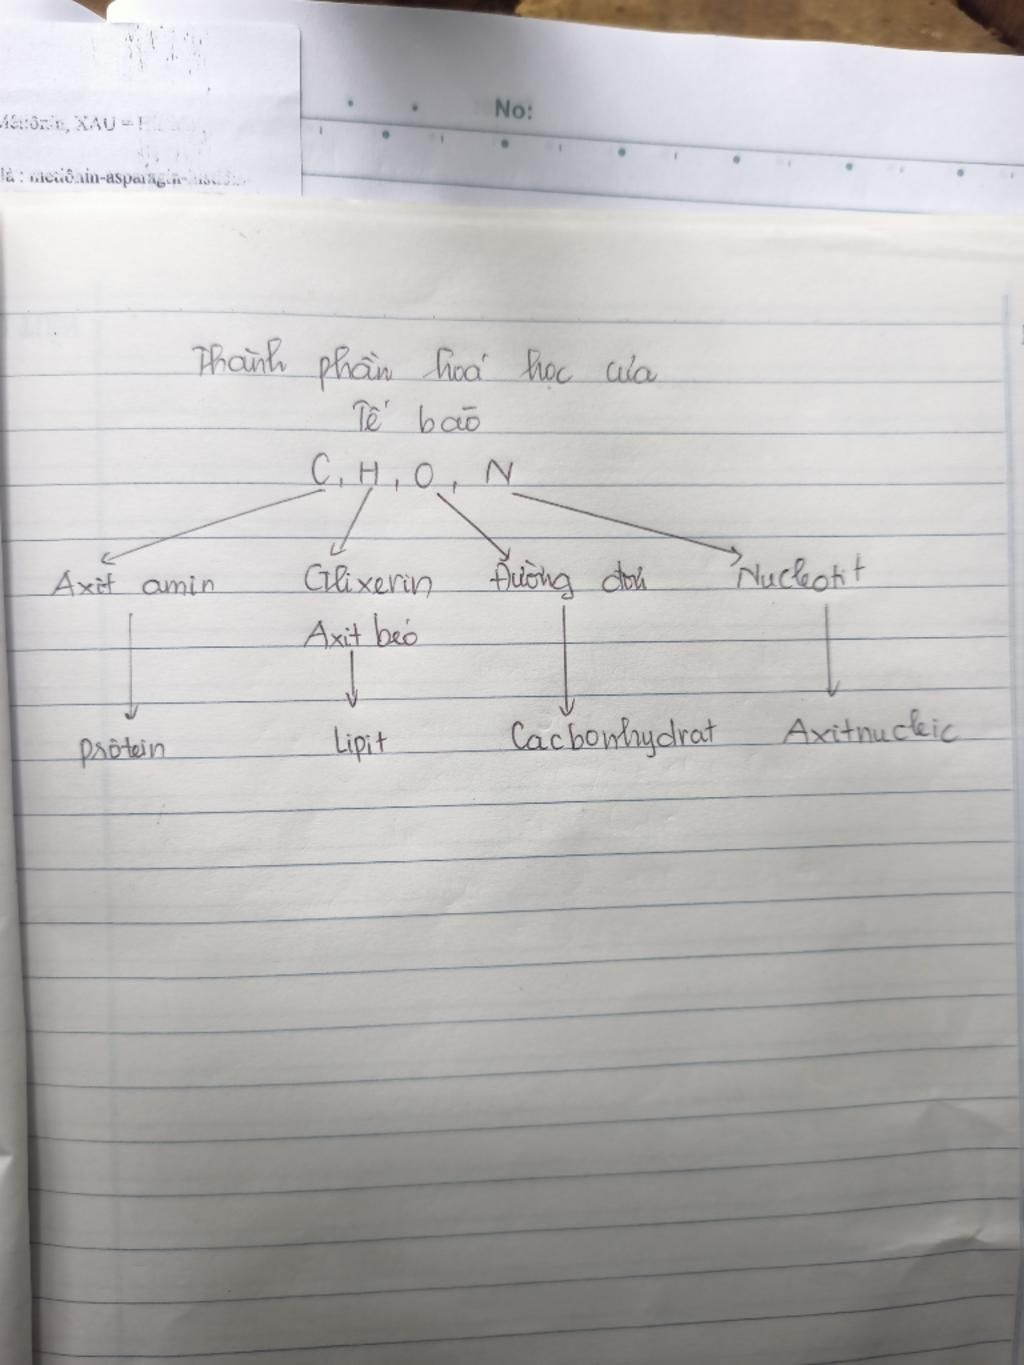 No:
Metiônin, XAU =
là : metiônin-asparagin-
Thành phần hoá học của
Tế bào
C, H, O, N
Axit amin Glixerin Đường đơn Nucleotit
Axit béo
Prôtein Lipit Cacbonhydrat Axitnucleic